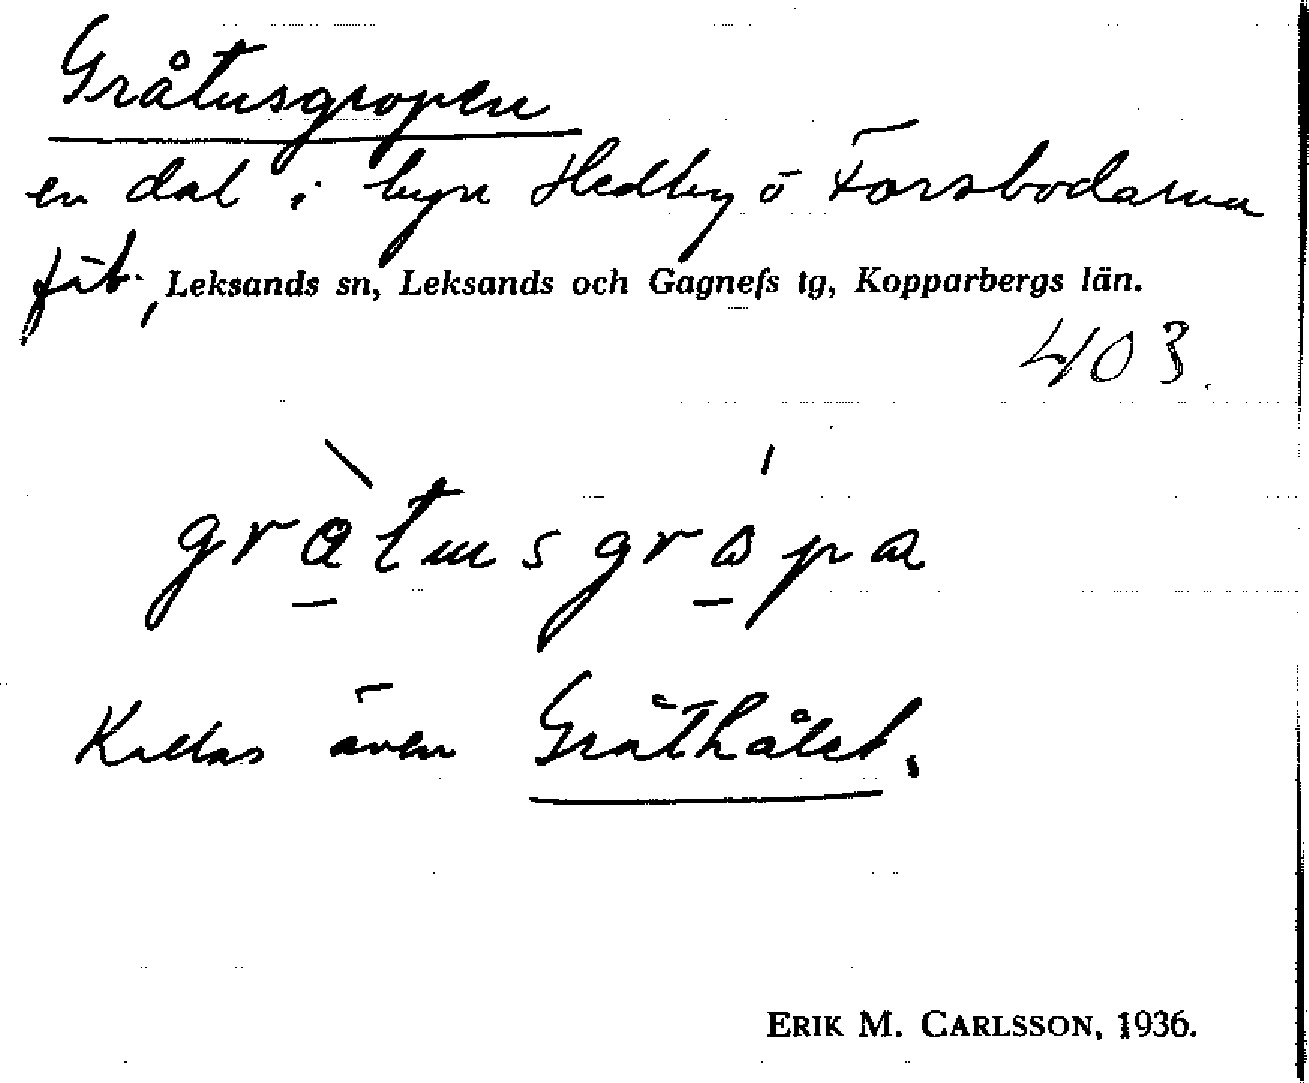 Gråtusgropen
en dal i byn Hedby ö Forsbodarna
fäb., Leksands sn, Leksands och Gagnefs tg, Kopparbergs län.
403.
gràtusgrópa
Kallas även Gråthålet.
ERIK M. CARLSSON, 1936.